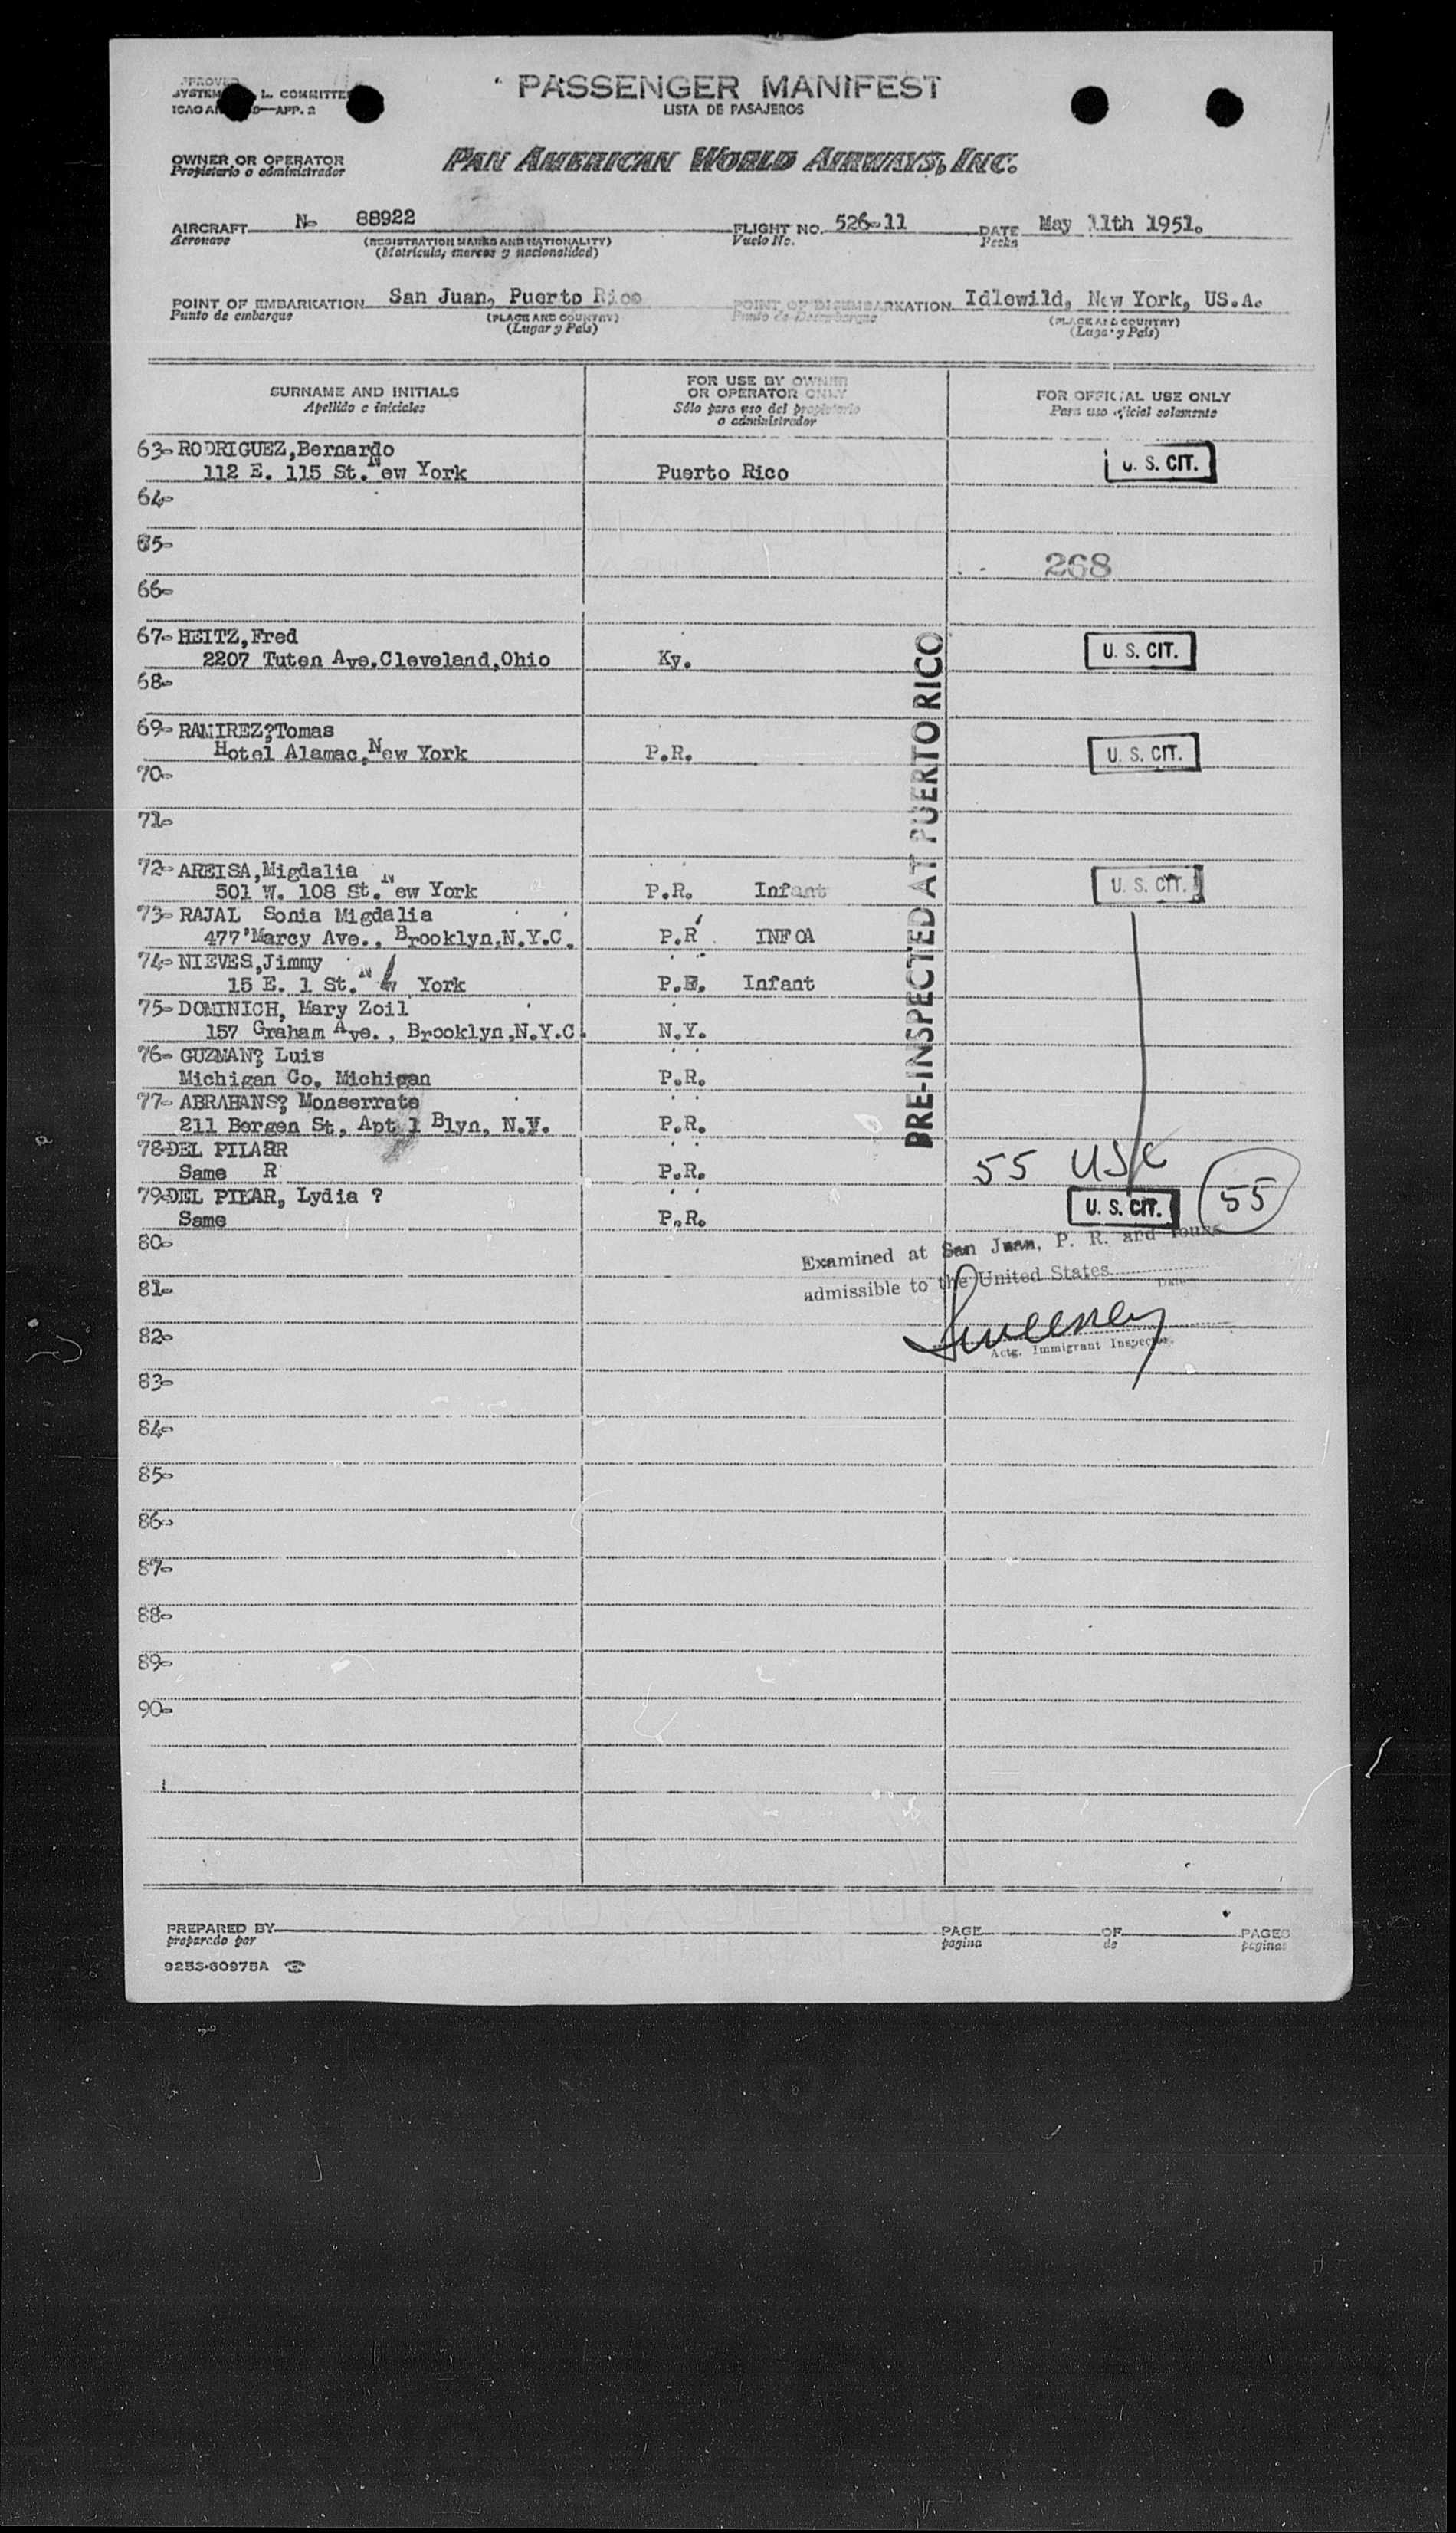 PASSENGER MANIFEST
LISTA DE PASAJEROS
L. COMMITTEE
APP. 2
OWNER OR OPERATOR
Propietario o administrador
PAN AMERICAN WORLD AIRWAYS, INC.
AIRCRAFT N- 88922 FLIGHT NO. 526-11 DATE May 11th 1951.
Aeronave (REGISTRATION MARKS AND NATIONALITY) Vuelo No. Fecha
(Matricula, marcas y nacionalidad)
POINT OF EMBARKATION San Juan, Puerto Rico POINT OF DISEMBARKATION Idlewild, New York, US.A.
Punto de embarque (PLACE AND COUNTRY) Punto de Desembarque (PLACE AND COUNTRY)
(Lugar y País) (Lugar y País)
SURNAME AND INITIALS
Apellido e iniciales
FOR USE BY OWNER
OR OPERATOR ONLY
Sólo para uso del propietario
o administrador
FOR OFFICIAL USE ONLY
Para uso oficial solamente
63- RODRIGUEZ,Bernardo
112 E. 115 St. New York Puerto Rico U. S. CIT.
64-
65-
268
66-
67- HEITZ,Fred
2207 Tuten Ave.Cleveland,Ohio Ky. U. S. CIT.
68-
69- RAMIREZ?Tomas
Hotel Alamac,New York P.R. U. S. CIT.
70-
71-
72- AREISA,Migdalia
501 W. 108 St. New York P.R. Infant U. S. CIT.
73- RAJAL Sonia Migdalia
477'Marcy Ave., Brooklyn,N.Y.C. P.R INFOA
74- NIEVES,Jimmy
15 E. 1 St. N York P.R. Infant
75- DOMINICH, Mary Zoil
157 Graham Ave., Brooklyn,N.Y.C. N.Y.
76- GUZMAN? Luis
Michigan Co. Michigan P.R.
77- ABRAHANS? Monserrate
211 Bergen St, Apt 1 Blyn, N.Y. P.R.
78-DEL PILAR
Same R P.R. 55 USC
79-DEL PILAR, Lydia ?
Same P.R. U. S. CIT. 55
PRE-INSPECTED AT PUERTO RICO
80-
Examined at San Juan, P. R. and found
admissible to the United States
Date
81-
Sweeney
82-
Actg. Immigrant Inspector.
83-
84-
85-
86-
87-
88-
89-
90-
PREPARED BY PAGE OF PAGES
preparado por pagina de paginas
9253-60975A